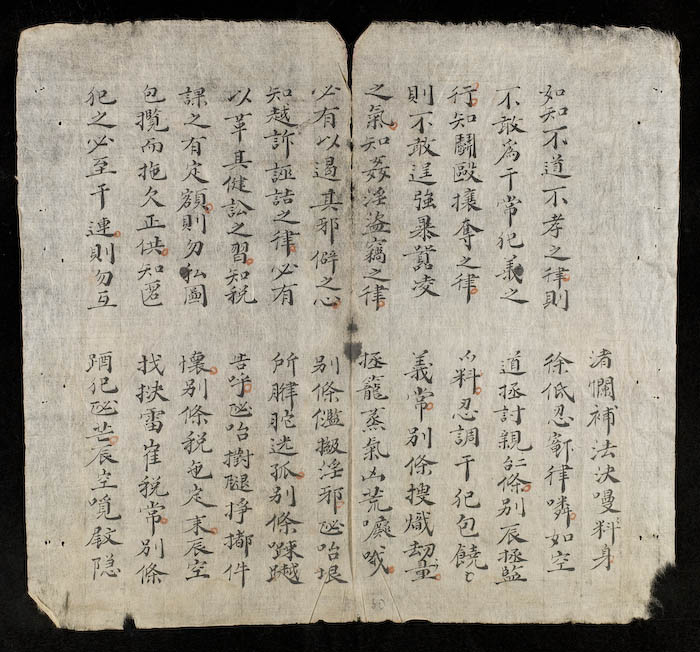 如知不道不孝之律則
不敢為干常犯義之
行知鬬毆攘奪之律
則不敢逞強暴囂凌
之氣知姦淫盜竊之律
必有以遏其邪僻之心
知越訴誣詰之律必有
以革其健訟之習知税
課之有定額則勿私圖
包攬而拖欠正供知匿
犯之必至干連則勿互
渚爛補法決嘜料身
徐低忍律如空
道拯討親條別辰拯監
料忍調干犯包饒
義常別條搜熾劫量
拯籠蒸氣凶荒哦
別條擬淫邪咍垠
所迷孤別條
告呼咍樹腿掙件
懷別條税定束辰空
找抰雷崔税常別條
犯芒辰空隐